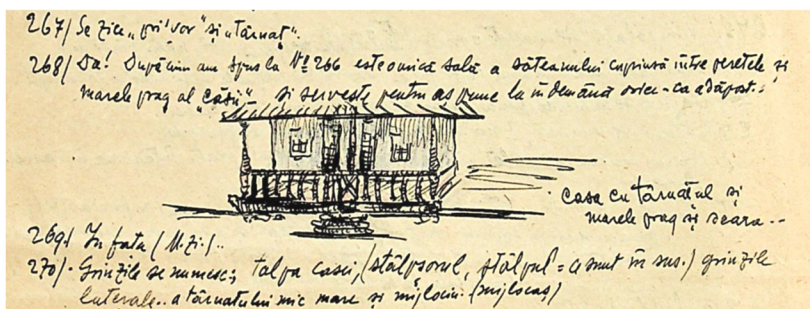 267/ Se zice „pri'vor” și „târnaț”.
268/ Da! După cum am spus la № 266 este o mică sală a săteanului cuprinsă între peretele și
marele prag al „căsii” și servește pentru a-și pune la îndemână orice-ca adăpost..
Casa cu târnățul și
marele prag și scara...
269/ În fața (N.Zi.)..
270/. Grinzile se numesc; talpa casii, (stâlpșorul, stâlpul = a sunt în sus.) grinzile
laterale.. a târnațului mic mare și mijlociu. (mijlocaș)